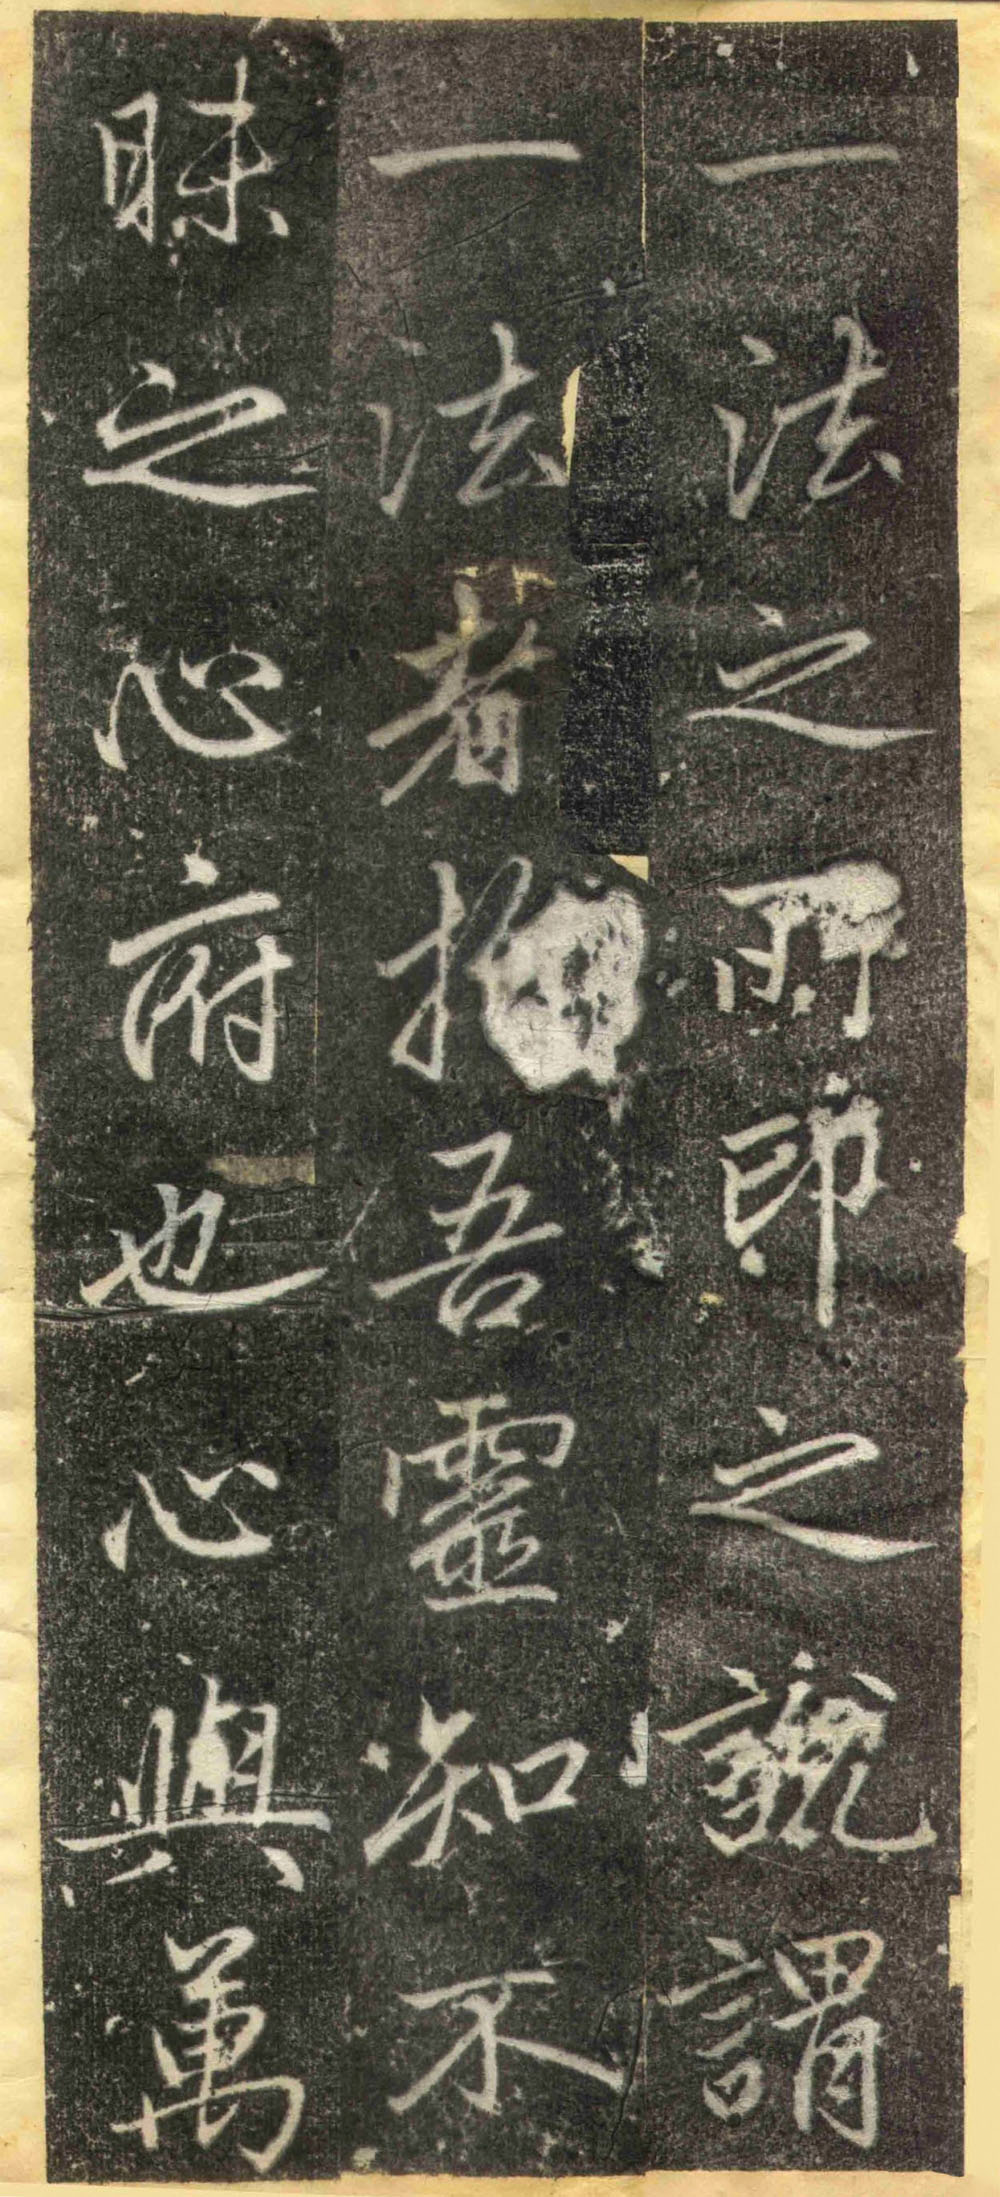 一法之所印之謂
一法者吾靈知不
昧之心府也心與萬